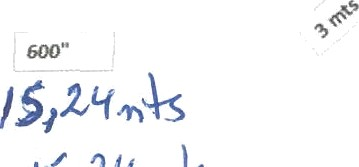 3 mts
600"
15,24 mts